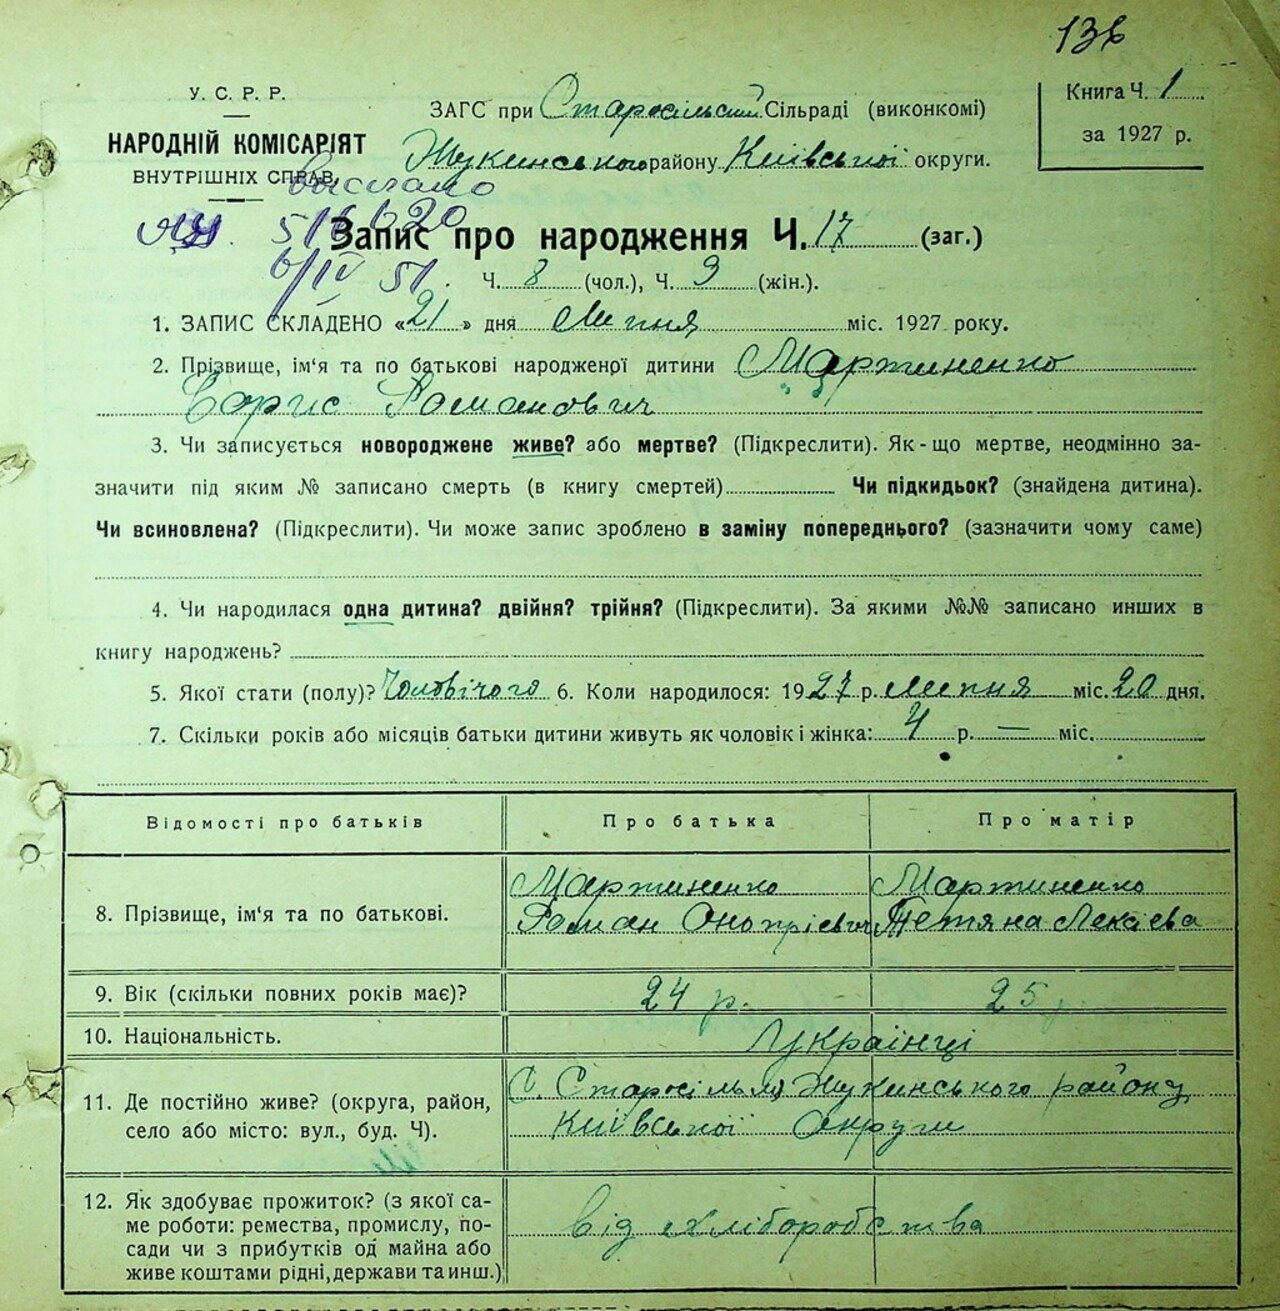 136
У. С. Р. Р.
НАРОДНІЙ КОМІСАРІЯТ
ВНУТРІШНІХ СПРАВ
ЗАГС при Старосільський Сільраді (виконкомі)
Жукинського району Київської округи.
Книга Ч. 1
за 1927 р.
выслано
516620
6/IV 51.
Запис про народження Ч. 17 (заг.)
Ч. 8 (чол.), Ч. 9 (жін.).
1. ЗАПИС СКЛАДЕНО «21» дня Липня міс. 1927 року.
2. Прізвище, ім'я та по батькові народженої дитини Мартиненко
Борис Романович
3. Чи записується новороджене живе? або мертве? (Підкреслити). Як-що мертве, неодмінно за-
значити під яким № записано смерть (в книгу смертей) Чи підкидьок? (знайдена дитина).
Чи всиновлена? (Підкреслити). Чи може запис зроблено в заміну попереднього? (зазначити чому саме)
4. Чи народилася одна дитина? двійня? трійня? (Підкреслити). За якими №№ записано инших в
книгу народжень?
5. Якої стати (полу)? Чоловічого 6. Коли народилося: 1927 р. липня міс. 20 дня.
7. Скільки років або місяців батьки дитини живуть як чоловік і жінка: 4 р. — міс.
Відомості про батьків Про батька Про матір
8. Прізвище, ім'я та по батькові. Мартиненко Роман Онопрієвич Мартиненко Тетяна Лексієва
9. Вік (скільки повних років має)? 24 р. 25 р.
10. Національність. Українці
11. Де постійно живе? (округа, район, С. Старосілля Жукинського району
село або місто: вул., буд. Ч). Київської Округи
12. Як здобуває прожиток? (з якої са-
ме роботи: ремества, промислу, по- від хліборобства
сади чи з прибутків од майна або
живе коштами рідні, держави та инш.)